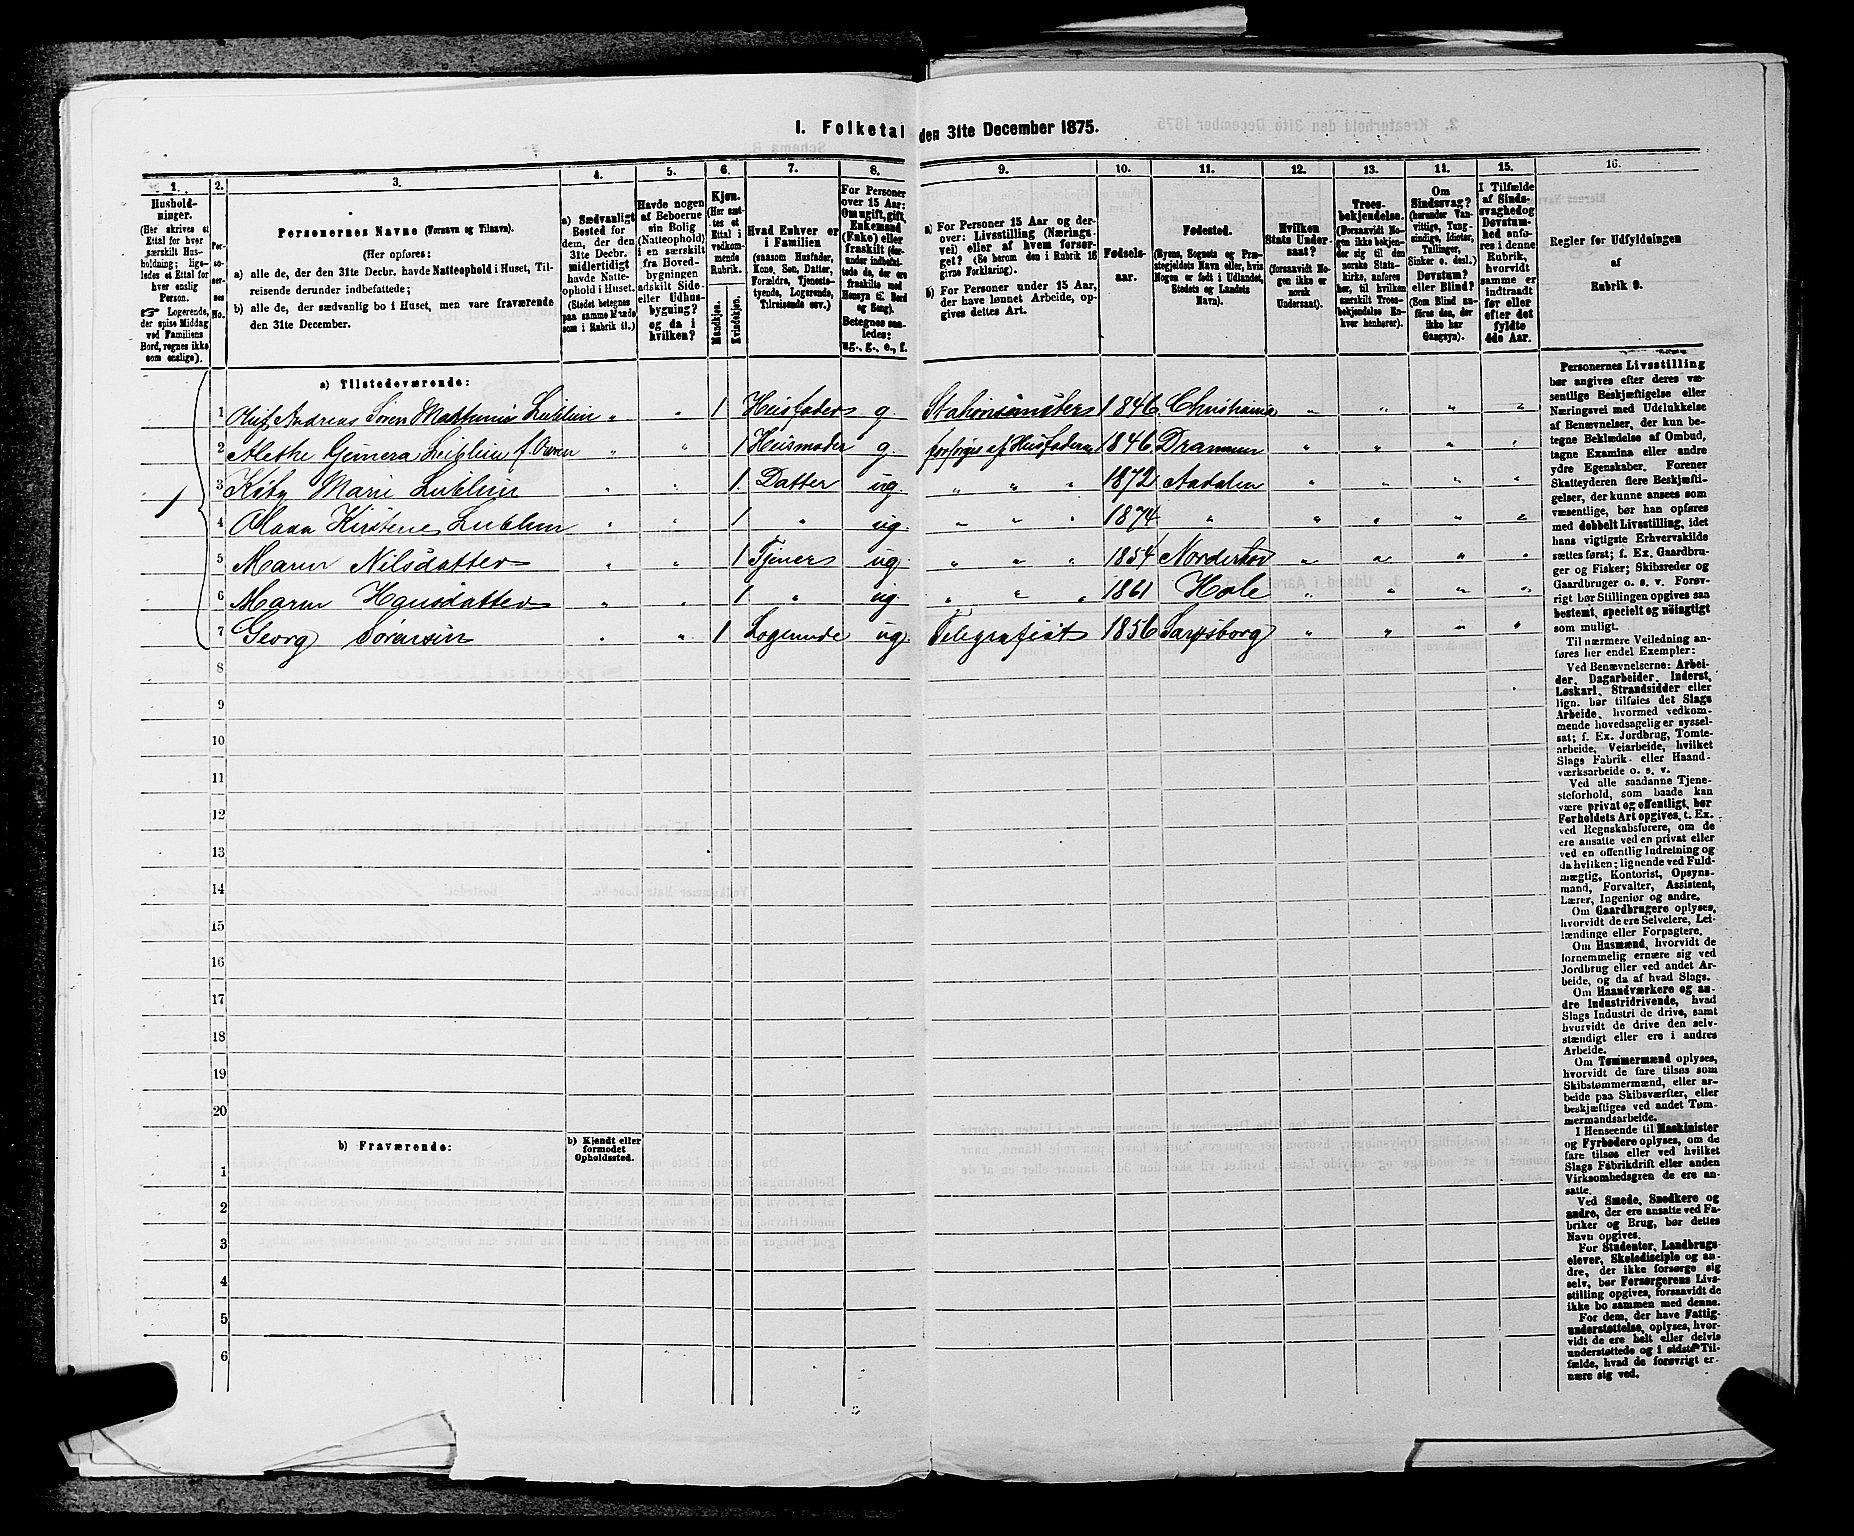 I. Folketal den 31te December 1875.
1. 2. 3. 4. 5. 6. 7. 8. 9. 10. 11. 12. 13. 14. 15. 16.
Husholdninger.
(Her skrives et
Ettal for hver
særskilt Husholdning;
ligeledes et Ettal for
hver enslig
Person.
Logerende,
der spise Middag
ved Familiens
Bord, regnes ikke
som enslige).
Personernes No.
Personernes Navne (Fornavn og Tilnavn).
(Her opføres:
a) alle de, der den 31te Decbr. havde Natteophold i Huset, Tilreisende derunder indbefattede;
b) alle de, der sædvanlig bo i Huset, men vare fraværende
den 31te December.
a) Sædvanligt
Bosted for
dem, der den
31te Decbr.
midlertidigt
havde Natteophold i Huset.
(Stedet betegnes
paa samme Maade
som i Rubrik 11.)
Havde nogen
af Beboerne
sin Bolig
(Natteophold)
i en særskilt
fra Hovedbygningen
adskilt Side-
eller Udhusbygning?
og da i
hvilken?
Kjøn.
(Her sættes et
Ettal i
vedkommende
Rubrik.
Mandkjøn.
Kvindekjøn.
Hvad Enhver er
i Familien
(saasom Husfader,
Kone, Søn, Datter,
Forældre, Tjenestetyende, Logerende,
Tilreisende osv.)
For Personer
over 15 Aar:
Om ugift, gift,
Enkemand
(Enke) eller
fraskilt (derunder indbefattede de, der ere
fraskilte med
Hensyn til Bord
og Seng).
Betegnes saaledes:
ug., g., e., f.
a) For Personer 15 Aar og derover: Livsstilling (Næringsvei) eller af hvem forsørget? (Se herom den i Rubrik 16
givne Forklaring).
b) For Personer under 15 Aar,
der have lønnet Arbeide, opgives dettes Art.
Fødselsaar.
Fødested.
(Byens, Sognets og Præstegjeldets Navn eller, hvis
Nogen er født i Udlandet,
Stedets og Landets
Navn).
Hvilken
Stats Undersaat?
(forsaavidt Nogen ikke er
norsk
Undersaat).
Troesbekjendelse.
(Forsaavidt Nogen ikke bekjender sig til den
norske Statskirke, anføres
her, til hvilken
særskilt Troesbekjendelse Enhver henhører).
Om
Sindssvag?
(herunder Vanvittige, Tungsindige, Idioter,
Tullinger,
Sinker o. desl.)
Døvstum?
eller Blind?
(Som Blind anføres den, der
ikke har
Gangsyn).
I Tilfælde
af Sindssvaghed og
Døvstumhed anføres i denne
Rubrik,
hvorvidt
samme er
indtraadt
før eller
efter det
fyldte
4de Aar.
Regler for Udfyldningen
af
Rubrik 9.
a) Tilstedeværende:
1 1 Oluf Andreas Søren Mathinius Lublin " " 1 Husfader g. Stationsmester 1846 Christiania " " " "
2 Alethe Gunera Lublin f. Owren " " 1 Husmoder g. forsørges af Husfaderen 1846 Drammen " " " "
3 Kitty Marie Lublin " " 1 Datter ug. " " " 1872 Aadalen " " " "
4 Olava Kirstene Lublin " " 1 " ug. " " " 1874 " " " " "
5 Maren Nilsdatter " " 1 Tjener ug. " " " 1854 Norderhov " " " "
6 Maren Hansdatter " " 1 " ug. " " " 1861 Hole " " " "
7 Georg Sørensen " " 1 Logerende ug. Telegrafist 1856 Sarpsborg " " " "
8
9
10
11
12
13
14
15
16
17
18
19
20
b) Fraværende:
b) Kjendt eller
formodet
Opholdssted.
1
2
3
4
5
6
Personernes Livsstilling
bør angives efter deres væsentlige Beskjæftigelse eller
Næringsvei med Udelukkelse
af Benævnelser, der kun betegne Beklædelse af Ombud,
tagne Examina eller andre
ydre Egenskaber. Forener
Skatteyderen flere Beskjæftigelser, der kunne ansees som
væsentlige, bør han opføres
med dobbelt Livsstilling, idet
hans vigtigste Erhvervskilde
sættes først; f. Ex. Gaardbruger og Fisker; Skibsreder og
Gaardbruger o. s. v. Forøvrigt bør Stillingen opgives saa
bestemt, specielt og nøiagtigt
som muligt.
Til nærmere Veiledning anføres her endel Exempler:
Ved Benævnelserne: Arbeider, Dagarbeider, Inderst,
Løskarl, Strandsidder eller
lign. bør tilføies det Slags
Arbeide, hvormed vedkommende hovedsagelig er sysselsat; f. Ex. Jordbrug, Tomtearbeide, Veiarbeide, hvilket
Slags Fabrik- eller Haandværksarbeide o. s. v.
Ved alle saadanne Tjenesteforhold, som baade kan
være privat og offentligt, bør
Forholdets Art opgives, t. Ex.
ved Regnskabsførere, om de
ere ansatte ved en privat eller
ved en offentlig Indretning og
da hvilken; lignende ved Fuldmægtig, Kontorist, Opsynsmand, Forvalter, Assistent,
Lærer, Ingeniør og andre.
Om Gaardbrugere oplyses,
hvorvidt de ere Selveiere, Leilændinge eller Forpagtere.
Om Husmænd, hvorvidt de
fornemmelig ernære sig ved
Jordbrug eller ved andet Arbeide, og da af hvad Slags.
Om Haandværkere og andre Industridrivende, hvad
Slags Industri de drive, samt
hvorvidt de drive den selvstændigt eller ere i andres
Arbeide.
Om Tømmermænd oplyses,
hvorvidt de fare tilsøs som
Skibstømmermænd, eller arbeide paa Skibsværfter, eller
beskjæftiges ved andet Tømmermandsarbeide.
I Henseende til Maskinister
og Fyrbødere oplyses, om de
fare tilsøs eller ved hvilket
Slags Fabrikdrift eller anden
Virksomhedsgren de ere ansatte.
Ved Smede, Snedkere og
andre, der ere ansatte ved Fabriker og Brug, bør dettes
Navn opgives.
For Studenter, Landbrugselever, Skoledisciple og andre, der ikke forsørge sig
selv, bør Forsørgerens Livsstilling opgives, forsaavidt de
ikke bo sammen med denne.
For dem, der have Fattigunderstøttelse, oplyses, hvorvidt de ere helt eller delvis
understøttede og i sidste Tilfælde, hvad de forøvrigt ernære sig ved.